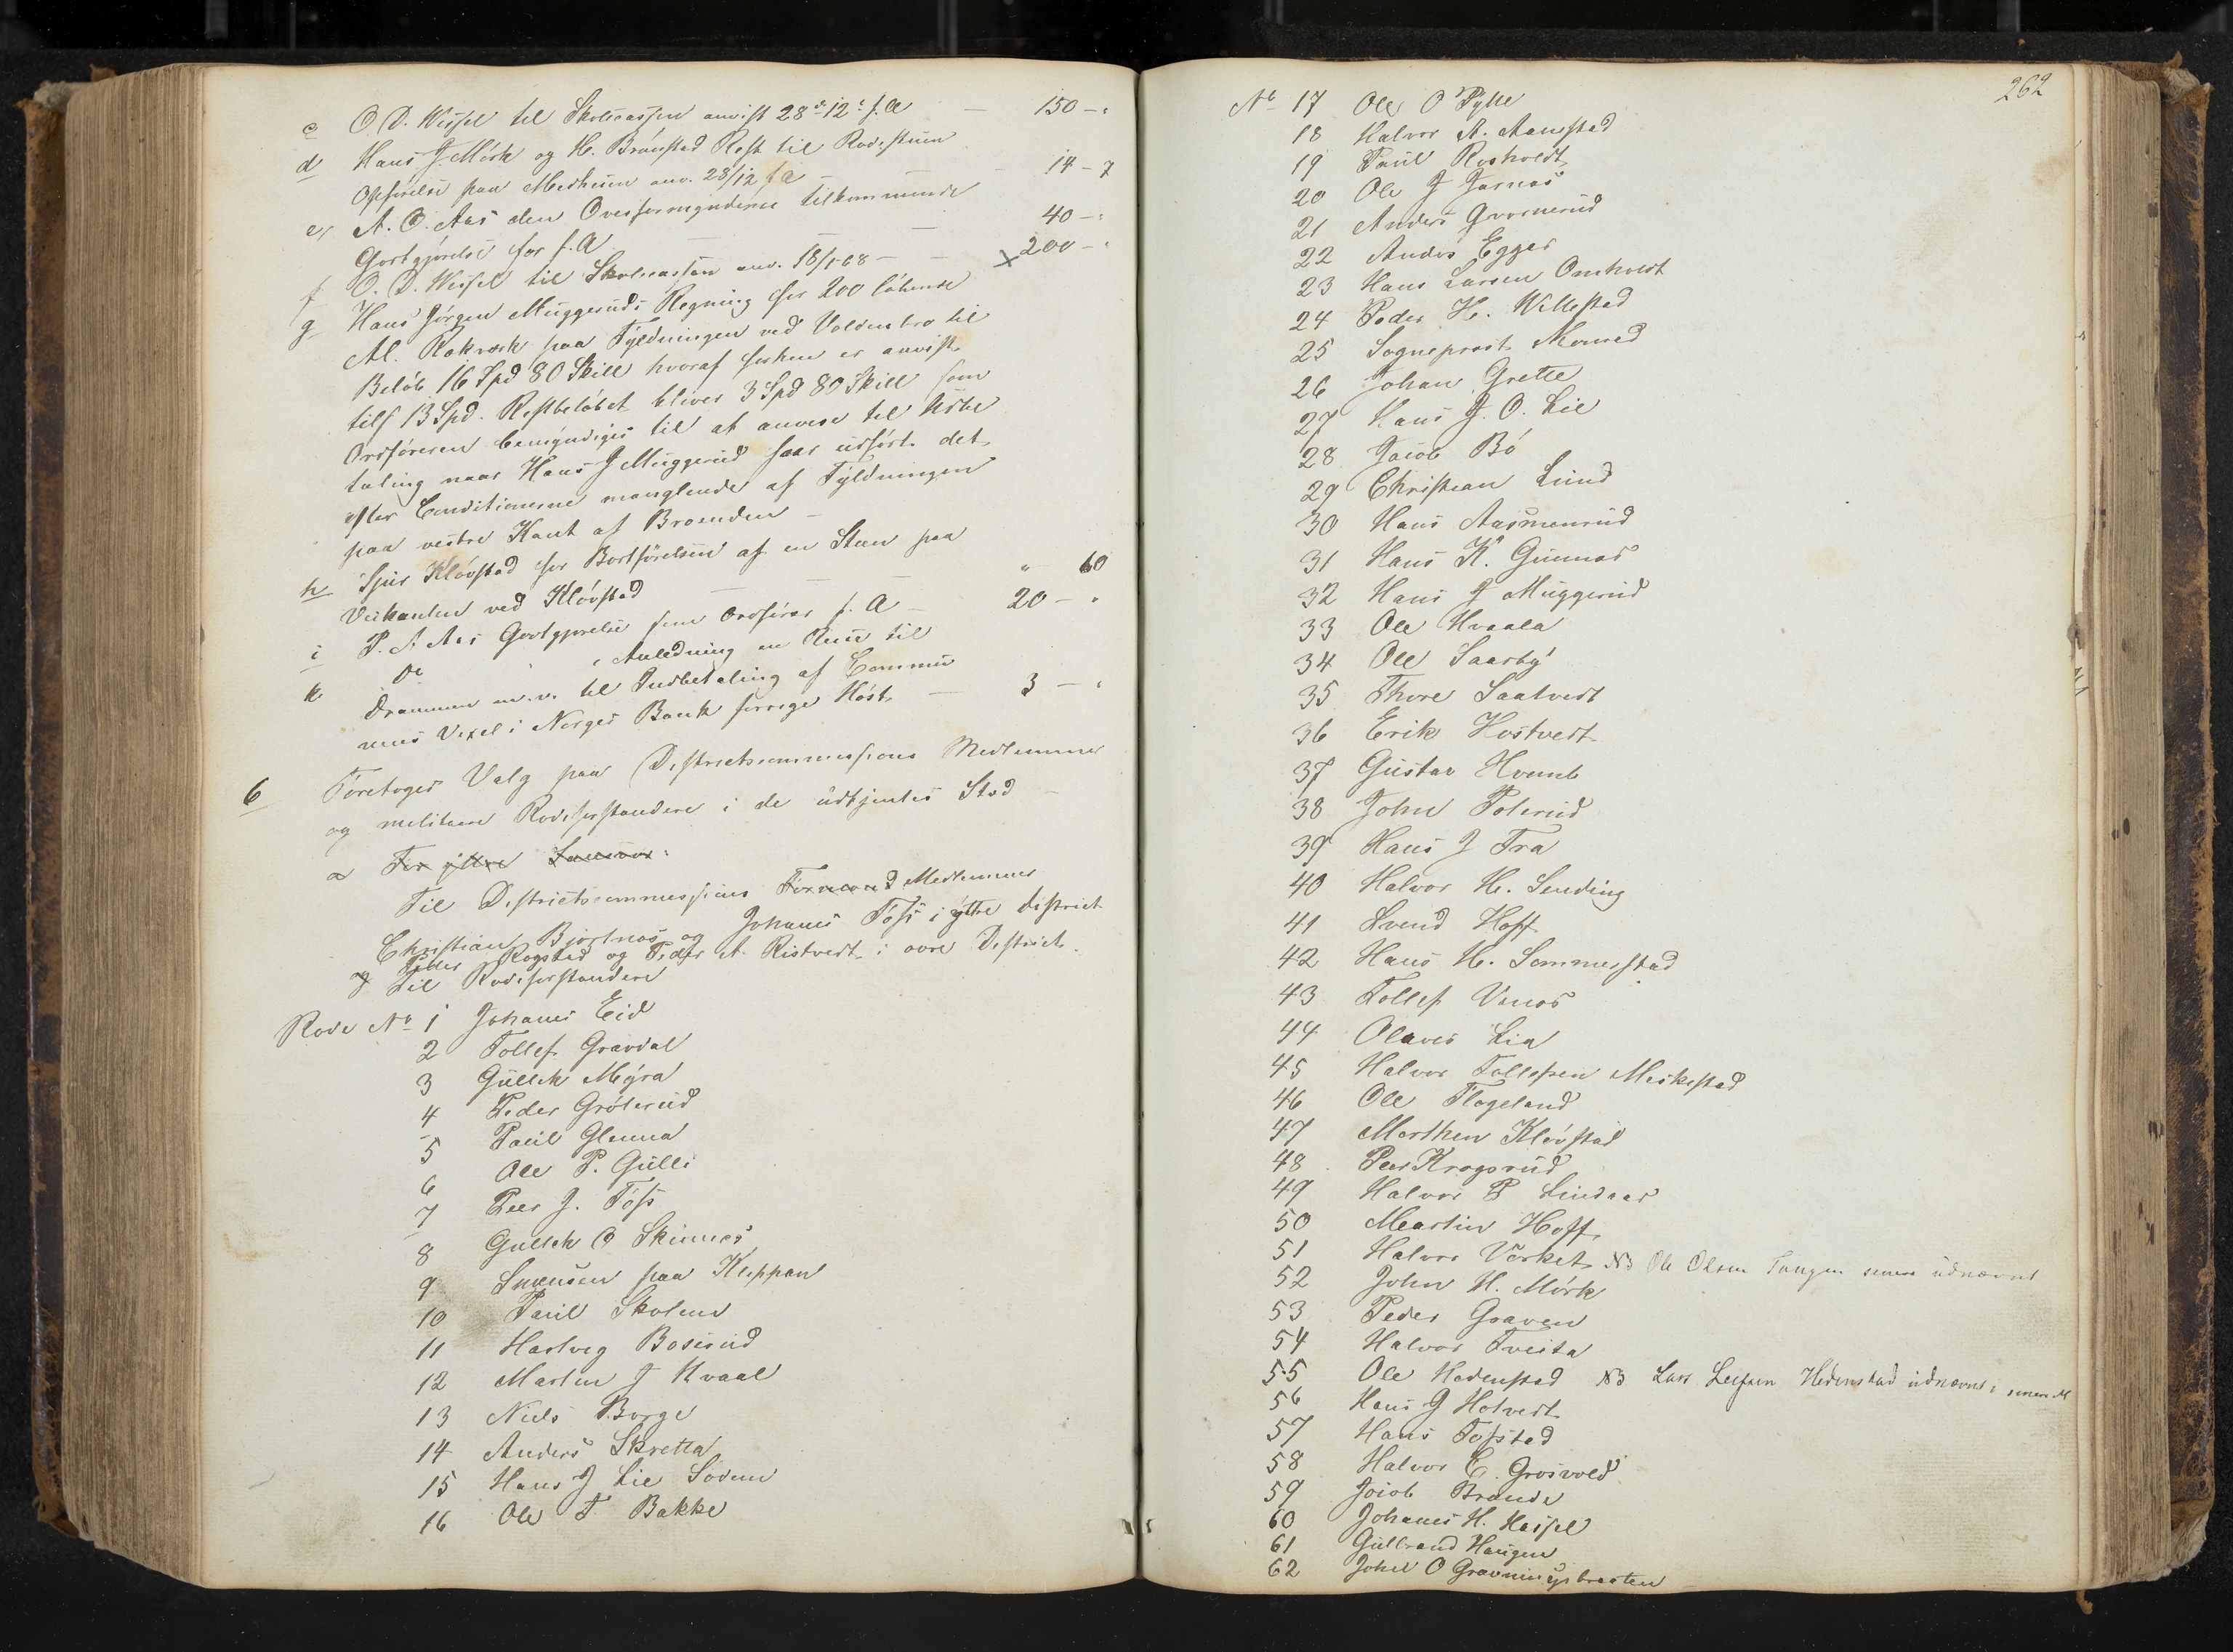 c O. D. Wessel til Skolecassen anvist 28-12 f. A — 150 - "
d Hans J Mörk og H. Brönstad Rest til Rodestuen
Opförelse paa Medheien anv. 28/12 f A — 14 - 7
e A. O. Aas den Overformynderne tilkommende
Godtgjörelse for f. A — 40 - "
f O. D. Wessel til Skolecassen anv. 18/1-68 — 200 - "
g Hans Jörgen Muggeruds Regning for 200 löbende
Al. Rækværk paa Fyldningen ved Voldenbro til
Belöb 16 Spd 80 Skill hvoraf forhen er anvist
tils 13 Spd. Restbelöbet bliver 3 Spd 80 Skill som
Ordföreren bemyndiges til at anvise til Udbe
taling naar Hans J Muggerud faar udfört det
efter Conditionerne manglende af Fyldningen
paa vestre Kant af Broenden —
h Sjur Klövstad for Bortförelsen af en Steen paa
Veikanten ved Klövstad — " 60
i P. A Aas Godtgjörelse som Ordförer f. A — 20 - "
k Do " i Anledning en Reise til
Drammen m. v. til Indbetaling af Commu
nens Vexel i Norges Bank forrige Höst — 3 - "
6 Foretoges Valg paa Districtscommissions Medlemmer
og militaire Rodeforstandere i de udtjentes Sted —
a For yttre
Til Districtscommissions Formænd Medlemmer
Christian Bjørtnæs og Johanes Föss i yttre District
og Peder Rogstad og Peder A. Ristvedt i övre District.
Til Rodeforstandere
Rode No 1 Johanes Eid
2 Tollef Gravdal
3 Gullek Myra
4 Peder Gröterud
5 Paul Glenna
6 Ole P. Gulli
7 Peer J. Föss
8 Gullek O Skinnes
9 Svensen paa Kleppan
10 Paul Skolem
11 Hartvig Boserud
12 Martin J Kvaal
13 Niels Borge
14 Anders Skretta
15 Hans J Lie Sodem
16 Ole T Bakke
262
No 17 Ole O Fylle
18 Halvor A. Aanestad
19 Paul Rosholdt
20 Ole J Jornæs
21 Anders Gvornerud
22 Anders Egger
23 Hans Larsen Omholdt
24 Peder H. Willestad
25 Sogneprest
26 Johan Grette
27 Hans J. O. Lie
28 Jacob Bö
29 Christian Lund
30 Hans Aasmenrud
31 Hans K. Gunnæs
32 Hans J Muggerud
33 Ole Hvaala
34 Ole Saasby
35 Thore Saatvedt
36 Erik Hostvedt
37 Gustav Hvemb
38 John Polerud
39 Hans J Fra
40 Halvor H. Sending
41 Svend Hoff
42 Hans H. Sommerstad
43 Tollef Vinæs
44 Olaves Lia
45 Halvor Tollefsen Meikestad
46 Ole Flageland
47 Morthen Klövstad
48 Peer Krogsrud
49 Halvor P Lindaas
50 Martin Hoff
51 Halvor Værket NB Ole Olsen Tangen senere udnævnt
52 John H. Mörk
53 Peder Graven
54 Halvor Tveita
55 Ole Hedenstad NB Lars Hedenstad udnævnt i
56 Hans J Hotvedt
57 Hans Fosstad
58 Halvor C. Grosvold
59 Jacob Strande
60 Johanes H. Hassel
61 Gulbrand Haugen
62 John O Gravningsbraaten